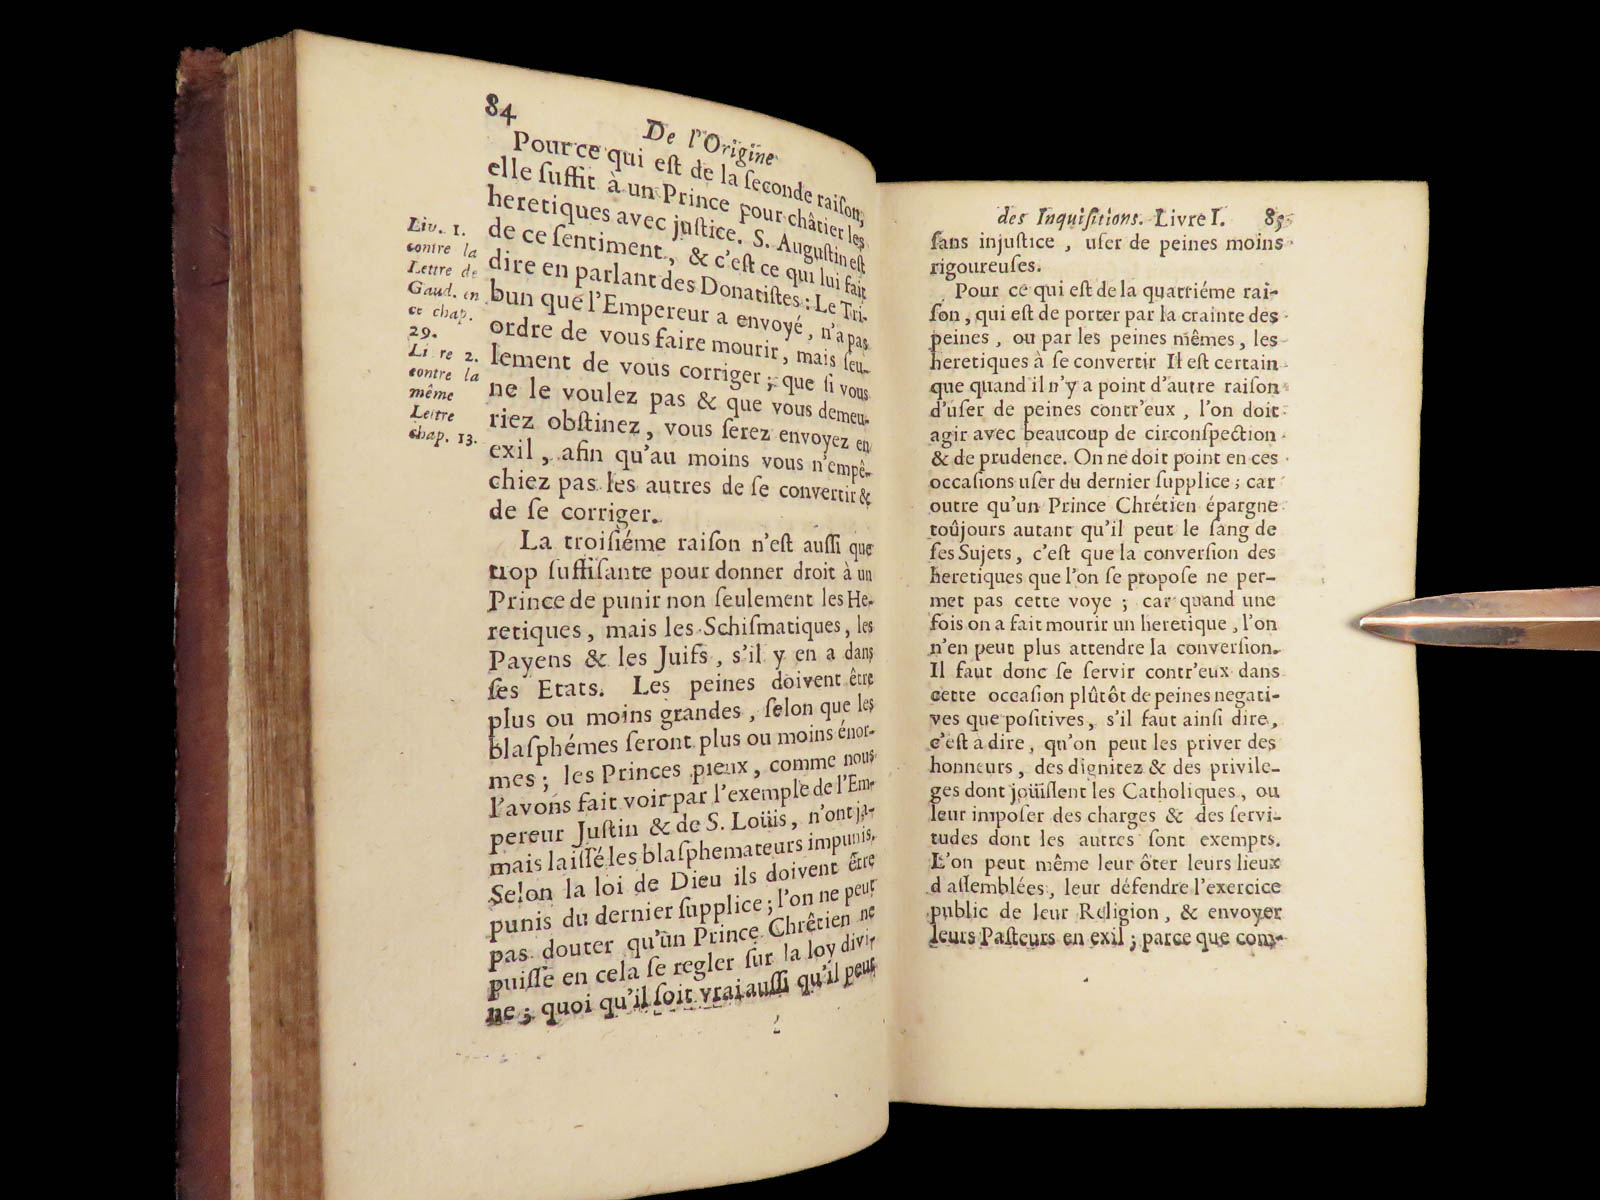 84
De l'Origine
Pour ce qui est de la seconde raison,
elle suffit à un Prince pour châtier les
heretiques avec justice. S. Augustin est
de ce sentiment, & c'est ce qui lui fait
dire en parlant des Donatistes : Le Tri-
bun que l'Empereur a envoyé, n'a pas
ordre de vous faire mourir, mais seu-
lement de vous corriger ; que si vous
ne le voulez pas & que vous demeu-
riez obstinez, vous serez envoyez en
exil, afin qu'au moins vous n'empê-
chiez pas les autres de se convertir &
de se corriger.
Liv. 1.
contre la
Lettre de
Gaud. en
ce chap.
29.
Li re 2.
contre la
même
Lettre
chap. 13.
La troisiéme raison n'est aussi que
trop suffisante pour donner droit à un
Prince de punir non seulement les He-
retiques, mais les Schismatiques, les
Payens & les Juifs, s'il y en a dans
ses Etats. Les peines doivent être
plus ou moins grandes, selon que les
blasphémes seront plus ou moins énor-
mes ; les Princes pieux, comme nous
l'avons fait voir par l'exemple de l'Em-
pereur Justin & de S. Loüis, n'ont ja-
mais laissé les blasphemateurs impunis.
Selon la loi de Dieu ils doivent être
punis du dernier supplice ; l'on ne peut
pas douter qu'un Prince Chrêtien ne
puisse en cela se regler sur la loy divi-
ne ; quoi qu'il soit vrai aussi qu'il peut
des Inquisitions. Livre I. 85
sans injustice, user de peines moins
rigoureuses.
Pour ce qui est de la quatriéme rai-
son, qui est de porter par la crainte des
peines, ou par les peines mêmes, les
heretiques à se convertir Il est certain
que quand il n'y a point d'autre raison
d'user de peines contr'eux, l'on doit
agir avec beaucoup de circonspection
& de prudence. On ne doit point en ces
occasions user du dernier supplice ; car
outre qu'un Prince Chrétien épargne
toûjours autant qu'il peut le sang de
ses Sujets, c'est que la conversion des
heretiques que l'on se propose ne per-
met pas cette voye ; car quand une
fois on a fait mourir un heretique, l'on
n'en peut plus attendre la conversion.
Il faut donc se servir contr'eux dans
cette occasion plûtôt de peines negati-
ves que positives, s'il faut ainsi dire,
c'est a dire, qu'on peut les priver des
honneurs, des dignitez & des privile-
ges dont joüissent les Catholiques, ou
leur imposer des charges & des servi-
tudes dont les autres sont exempts.
L'on peut même leur ôter leurs lieux
d'assemblées, leur défendre l'exercice
public de leur Religion, & envoyer
leurs Pasteurs en exil ; parce que com-